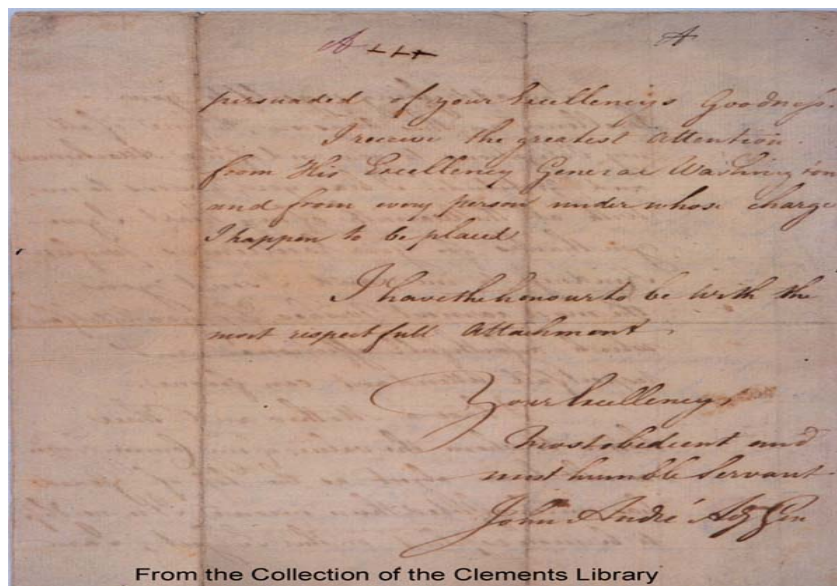 A
A
persuaded of your Excellency's Goodness.
I receive the greatest Attention
from His Excellency General Washington
and from every person under whose charge
I happen to be placed
I have the honour to be with the
most respectfull Attachment
Your Excellency's
most obedient and
most humble Servant
John André Adj Gen
From the Collection of the Clements Library